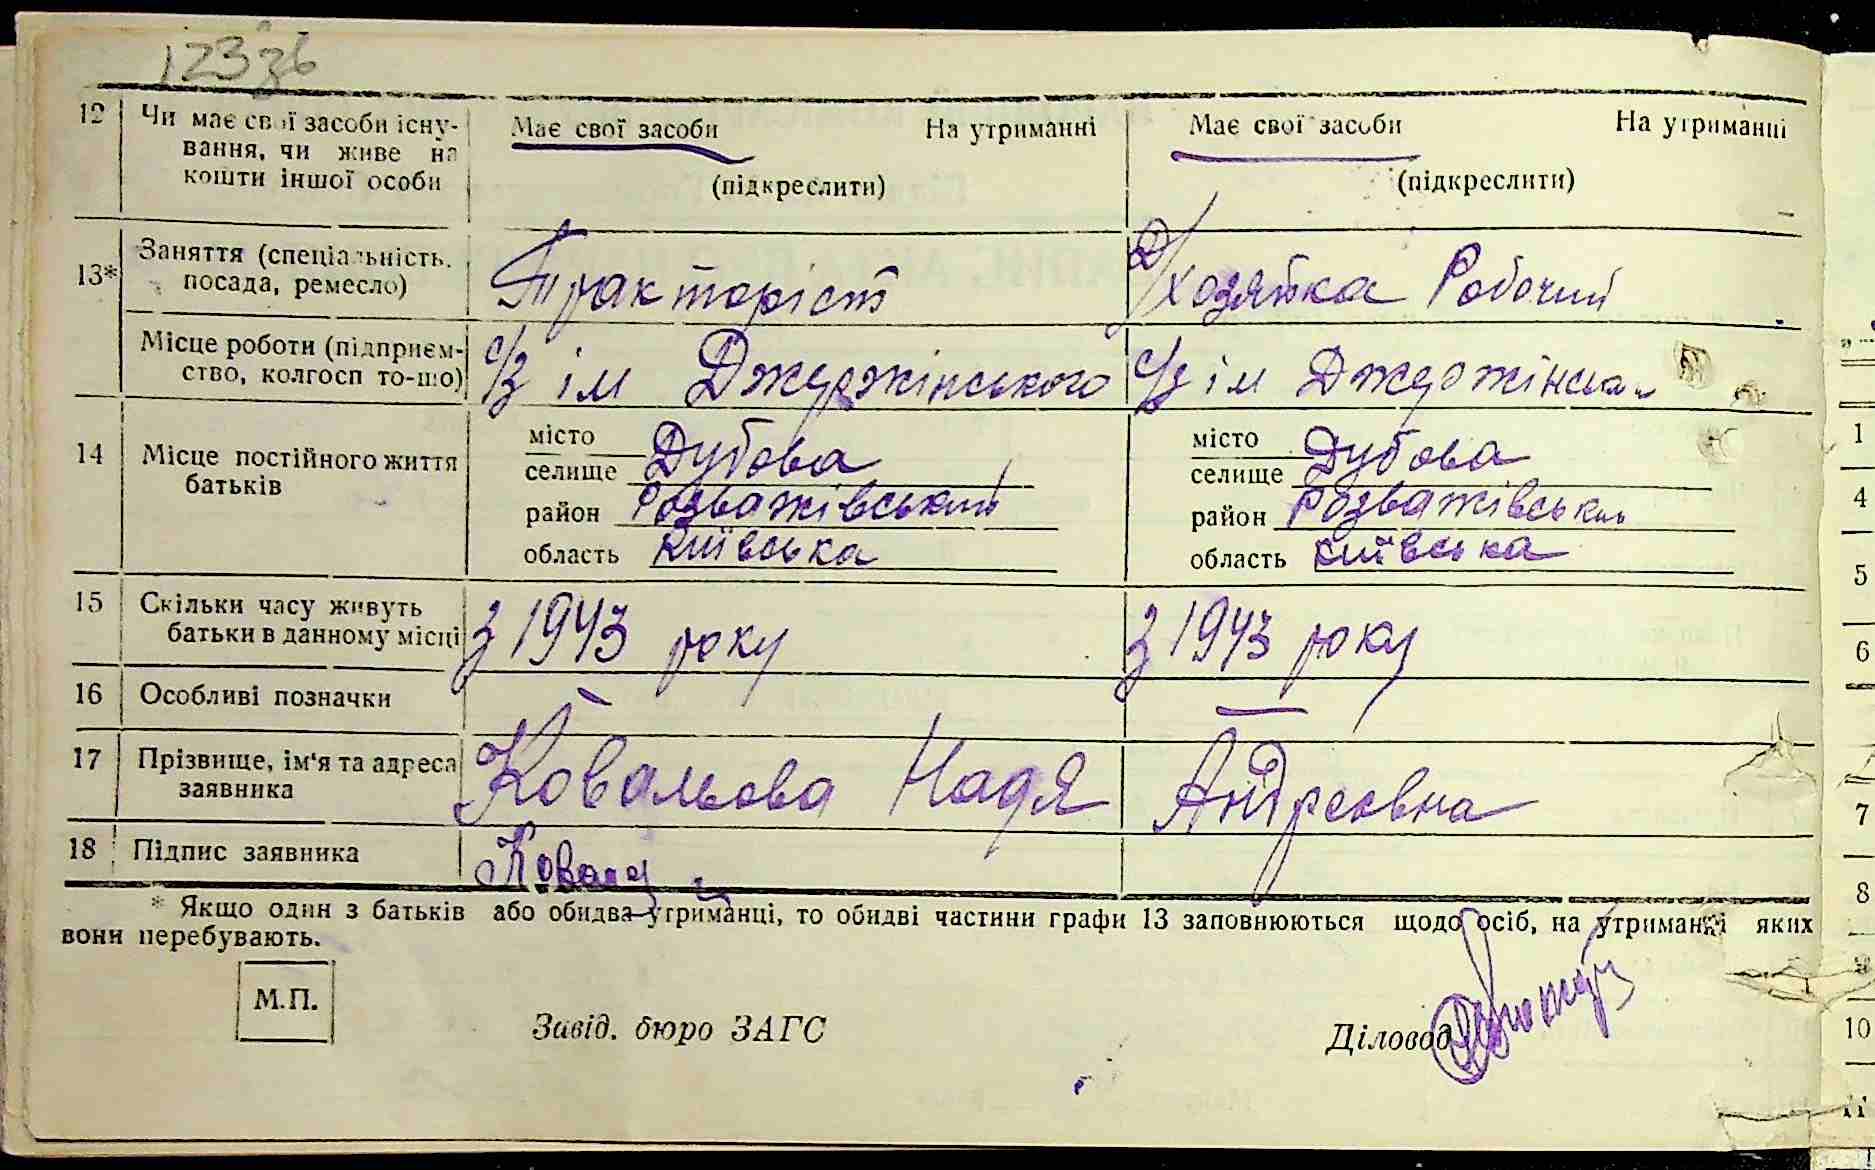 123зв
12 Чи має свої засоби існу- Має свої засоби На утриманні Має свої засоби На утриманні
вання, чи живе на
кошти іншої особи (підкреслити) (підкреслити)
13* Заняття (спеціальність, Тракторіст д/хозяйка Робочий
посада, ремесло)
Місце роботи (підприєм- с/з ім Джержінського с/з ім Джержінськ
ство, колгосп то-що)
14 Місце постійного життя місто Дубова місто Дубова
батьків селище селище
район Розважівський район Розважівськ
область Київська область Київська
15 Скільки часу живуть з 1943 року з 1943 року
батьки в данному місці
16 Особливі позначки — —
17 Прізвище, ім'я та адреса Ковальова Надя Андреовна
заявника
18 Підпис заявника Ковал
* Якщо один з батьків або обидва утриманці, то обидві частини графи 13 заповнюються щодо осіб, на утриманні яких
вони перебувають.
М.П.
Завід. бюро ЗАГС Діловод
1
4
5
6
7
8
9
10
11